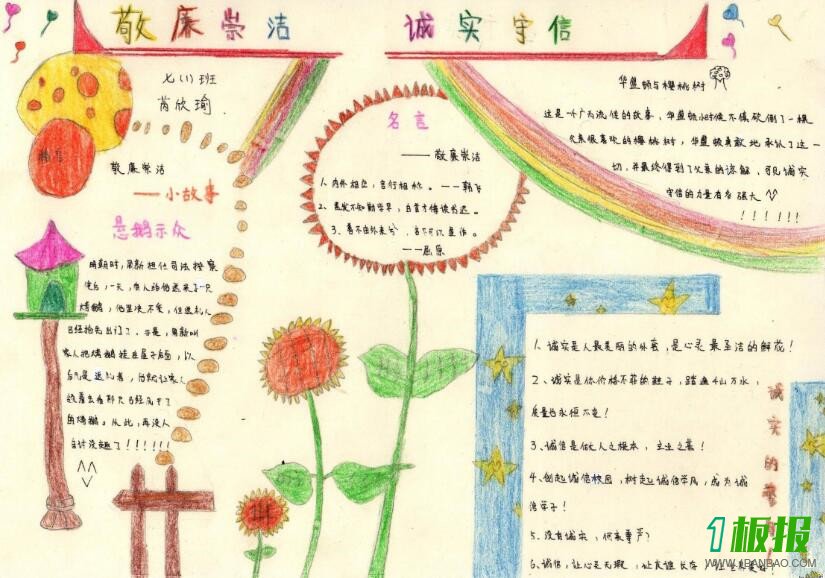 敬廉崇洁 诚实守信
七(1)班
芮欣瑜
敬廉崇洁
——小故事
悬鹅示众
明朝时，周新担任司法按察
使后，一天，有人给他送来了一只
烤鹅，他坚决不受，但送礼人
已经抢先出门了。于是，周新叫
家人把烤鹅挂在屋子后面，以
后凡是送礼者，
的烤鹅。从此，再没人
自讨没趣了！！！！！！
名言
——敬廉崇洁
1、内外相应，言行相称。——韩飞
2、黑发不知勤学早，白首方悔读书迟。
3、善不由外来兮，名不可以虚作。
——屈原
华盛顿与樱桃树
这是一个广为流传的故事，华盛顿小时候不慎砍倒了一棵
父亲很喜欢的樱桃树，华盛顿勇敢地承认了这一
切，并最终得到了父亲的谅解，可见诚实
守信的力量有多强大
！！！！！！
1、诚实是人最美丽的外套，是心灵最圣洁的鲜花！
2、诚实是你价格不菲的鞋子，踏遍千山万水，
质量也永恒不变！
3、诚信是做人之根本，立业之基！
4、创起诚信校园，树起诚信学风，成为诚
信学子！
5、没有诚实，何来尊严？
6、诚信，让心灵无瑕，让友谊长存，
诚实的
1板报
WWW.1BANBAO.COM